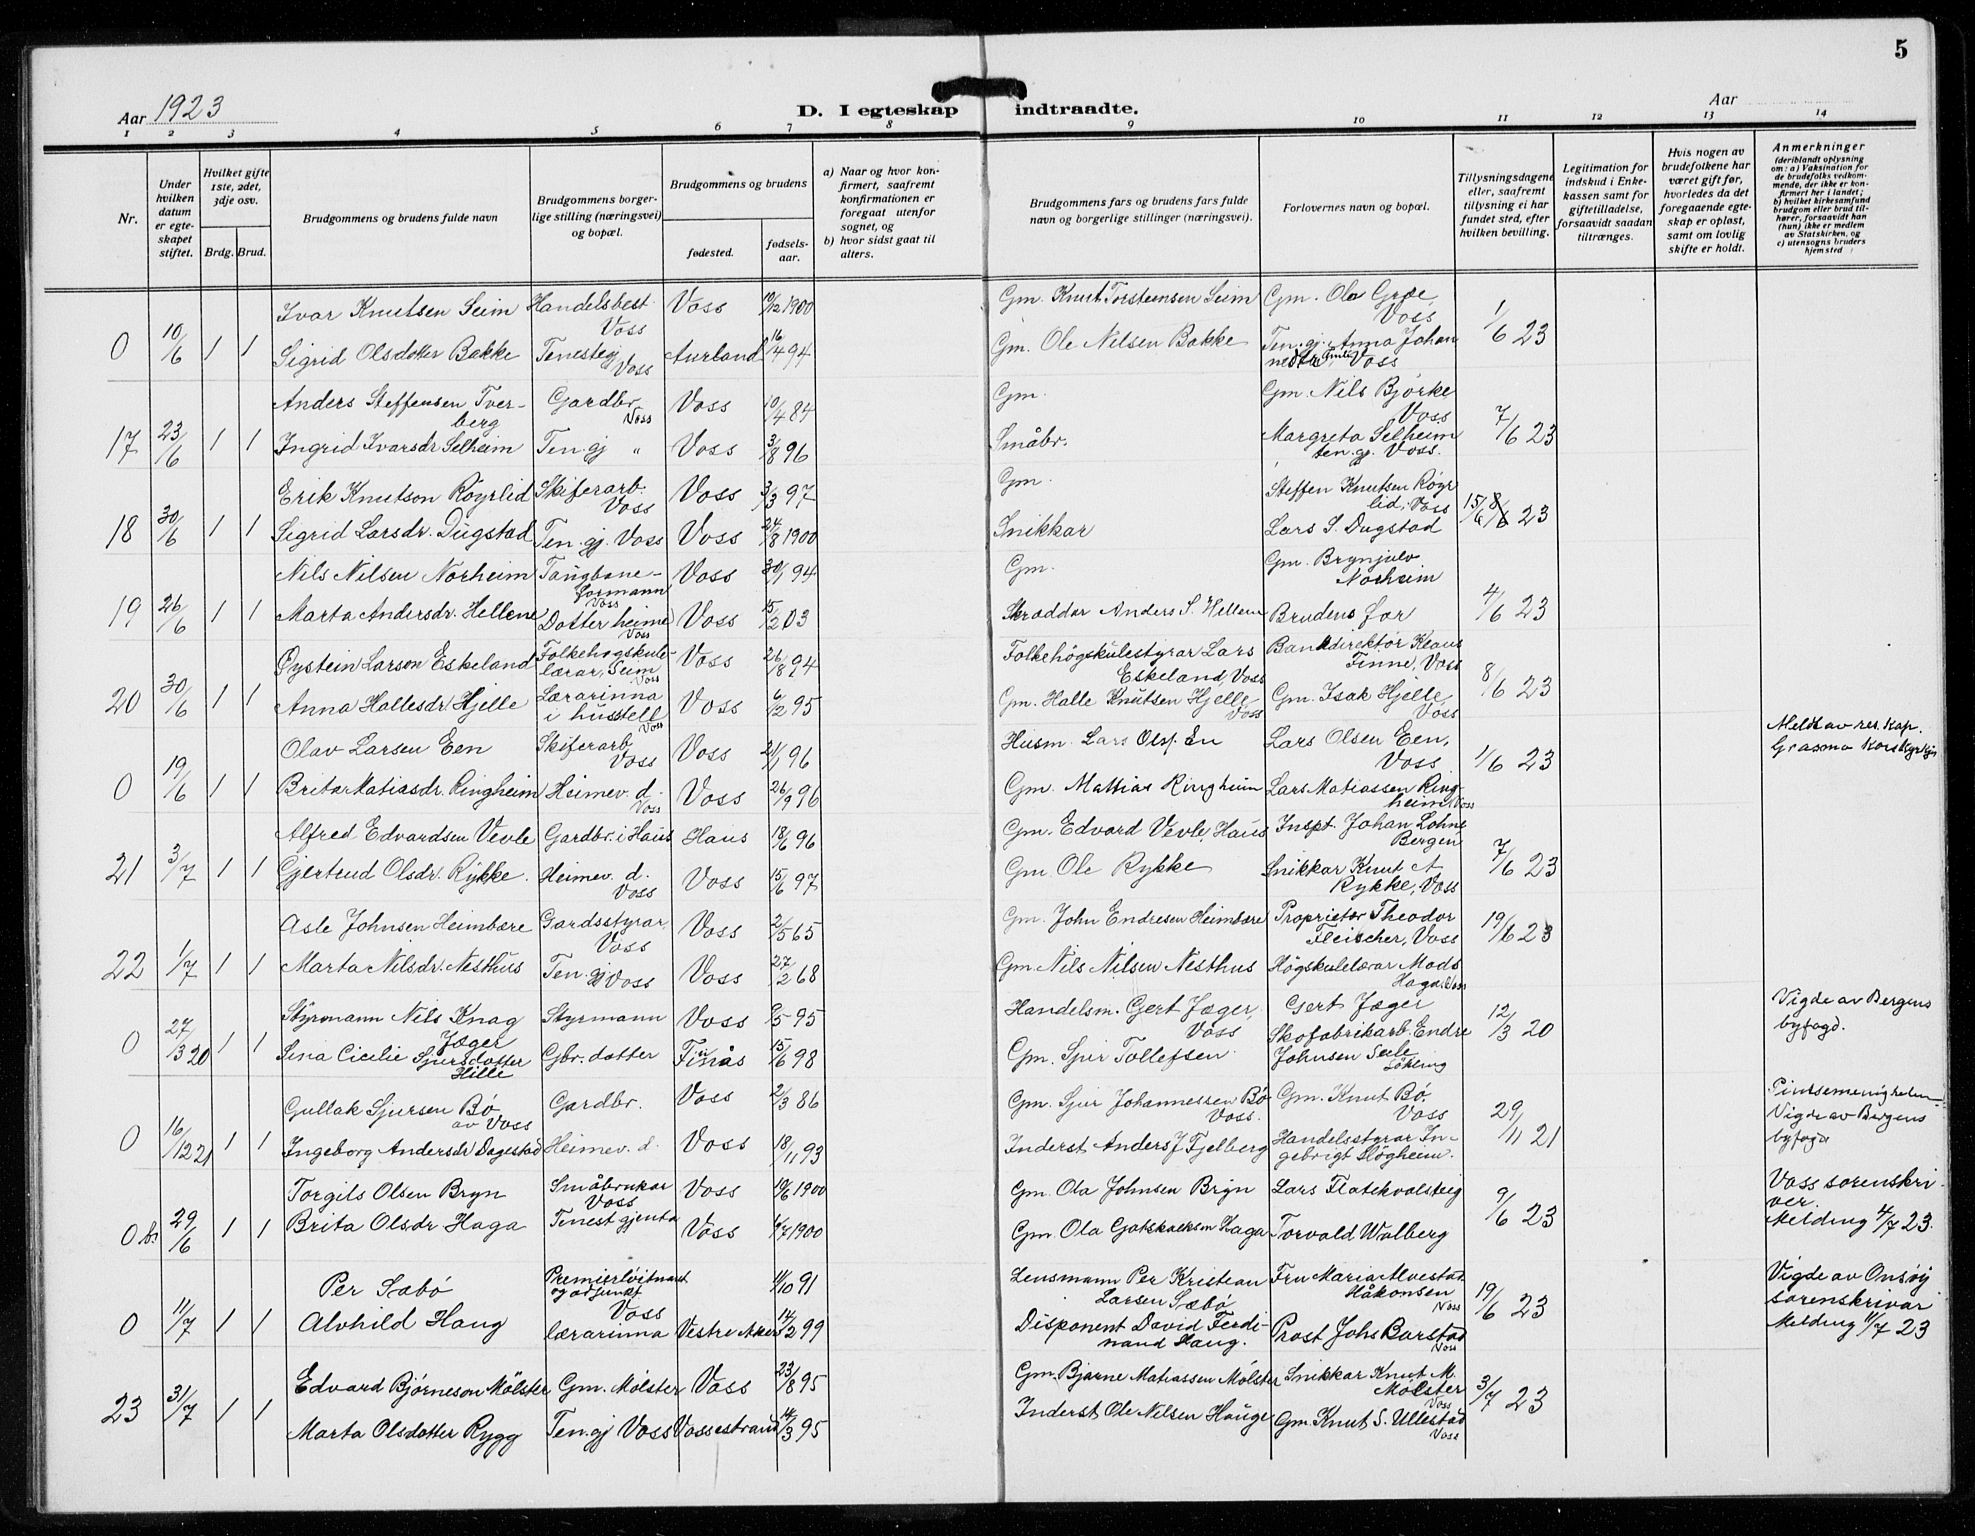 5
Aar 1923
D. I egteskap indtraadte.
Aar
1 2 3 4 5 6 7 8 9 10 11 12 13 14
Nr.
Under hvilken datum er egteskapet stiftet.
Hvilket gifte 1ste, 2det, 3dje osv.
Brdg. Brud.
Brudgommens og brudens fulde navn
Brudgommens borgerlige stilling (næringsvei) og bopæl.
Brudgommens og brudens
fødested.
fødselsaar.
a) Naar og hvor konfirmert, saafremt konfirmationen er foregaat utenfor sognet, og
b) hvor sidst gaat til alters.
Brudgommens fars og brudens fars fulde navn og borgerlige stillinger (næringsvei).
Forlovernes navn og bopæl.
Tillysningsdagene eller, saafremt tillysning ei har fundet sted, efter hvilken bevilling.
Legitimation for indskud i Enkekassen samt for giftetilladelse, forsaavidt saadan tiltrænges.
Hvis nogen av brudefolkene har været gift før, hvorledes da det foregaaende egteskap er opløst, samt om lovlig skifte er holdt.
Anmerkninger
(deriblandt oplysning om: a) Vaksination for de brudefolks vedkommende, der ikke er konfirmert her i landet; b) hvilket kirkesamfund brudgom eller brud tilhører, forsaavidt han (hun) ikke er medlem av Statskirken, og c) utensogns bruders hjemsted
0 10/6 1 1
Ivar Knutsen Seim Handelsbest. Voss Voss 10/12 1900 Gm. Knut Torsteinsen Seim Gm. Ola Grøe, Voss 1/6 23
Sigrid Olsdotter Bakke Tenestegj Voss Aurland 16/4 94 Gm. Ole Nilsen Bakke Ten.gj. Anna Johannesdtr. Voss
17 23/6 1 1
Anders Steffensen Tverberg Gardbr. Voss Voss 10/4 84 Gm. Gm. Nils Bjørke Voss 7/6 23
Ingrid Ivarsdr. Selheim Ten.gj " Voss 3/8 96 Småbr. Margreta Selheim ten.gj. Voss.
18 30/6 1 1
Erik Knutson Röyrlid Skiferarb. Voss Voss 3/3 97 Gm. Steffen Knutsen Röyrlid, Voss 15/6 8/6 23
Sigrid Larsdr. Dugstad Ten.gj. Voss Voss 24/8 1900 Snikkar Lars S. Dugstad
19 26/6 1 1
Nils Nilsen Norheim Taugbaneformann Voss Voss 30/1 94 Gm. Gm. Brynjulv Norheim 4/6 23
Marta Andersdr. Hellene Dotter heime Voss Voss 15/2 03 Skræddar Anders S. Hellene Brudens far
20 30/6 1 1
Øystein Larson Eskeland Folkehøgskulelærar, Seim Voss Voss 26/8 94 Folkehögskulestyrar Lars Eskeland, Voss Bankdirektör Klaus Finne, Voss 8/6 23
Anna Hallesdr. Hjelle Lærarinna i husstell Voss Voss 6/2 95 Gm. Halle Knutsen Hjelle Voss Gm. Isak Hjelle, Voss
0 19/6 1 1
Olav Larsen Een Skiferarb. Voss Voss 21/1 96 Husm. Lars Olss. En Lars Olsen Een, Voss 1/6 23 Meldt av res. Kap.
Brita Matiasdr. Ringheim Heimev. d. Voss Voss 26/9 96 Gm. Mathias Ringheim Lars Matiassen Ringheim, Voss
21 3/7 1 1
Alfred Edvardsen Vevle Gardbr. i Haus Haus 18/6 96 Gm. Edvard Vevle, Haus Inspt. Johan Lohne Bergen 7/6 23
Gjertrud Olsdr. Rykke. Heimev. d. Voss Voss 15/6 97 Gm Ole Rykke Snikkar Knut A Rykke, Voss
22 1/7 1 1
Asle Johnsen Heimbære Gardsstyrar, Voss Voss 2/5 65 Gm. John Endresen Heimbære Proprietær Theodor Fleischer, Voss 19/6 23
Marta Nilsdr. Nesthus Ten.gj Voss Voss 27/2 68 Gm. Nils Nilsen Nesthus Högskulelærar Mads Haga, Voss
0 27/3 20 1 1
Styrmann Nils Knag Jæger Styrmann Voss 95 Handelsm. Gert Jæger, Voss Gert Jæger 12/3 20 Vigde av Bergens byfogd.
Sina Cicilie Sjursdotter Hille Gbr. dotter Finnås 15/6 98 Gm. Sjur Tollefsen Skofabrikarb. Endre Johnsen Sele
0 16/12 21 1 1
Gullak Sjursen Bø av Voss Gardbr. Voss 2/3 86 Gm. Sjur Johannessen Bø Voss. Gm. Knut Bø, Voss 29/11 21 Pintsemenigheten. Vigde av Bergens byfogd
Ingeborg Andersdr. Dagestad Heimev. d. Voss 18/11 93 Inderst Anders J Fjelberg Handelsstyrar Ingebrigt Høgheim.
0 b. 29/6 1 1
Torgils Olsen Bryn Småbrukar Voss Voss 10/6 1900 Gm. Ola Johnsen Bryn Lars Flatekvalsteig 9/6 23 Voss sorenskriver. Melding 4/7 23.
Brita Olsdr Haga Tenestgjenta Voss 1/7 1900 Gm. Ola Gotskalksen Haga Torvald Walberg
0 11/7 1 1
Per Sæbö Premierløitnant og adjunkt Voss 11/10 91 Lensmann Per Kristian Larsen Sæbö Fru Maria Alvestad Håkonsen Voss 19/6 23 Vigde av Onsöy sorenskrivar Melding 11/7 23
Alvhild Haug lærarinna Vestre Aker 14/2 99 Disponent David Ferdinand Haug. Prost Johs Barstad Voss
23 31/7 1 1
Edvard Bjørneson Mölster Gm. Mölster Voss 23/8 95 Gm. Bjarne Matiassen Mölster Snikkar Knut M. Mölster Voss 3/7 23
Marta Olsdotter Rygg Ten.gj Voss Vossestrand 14/3 95 Inderst Ole Nilsen Hauge Gm. Knut S. Ullestad Voss